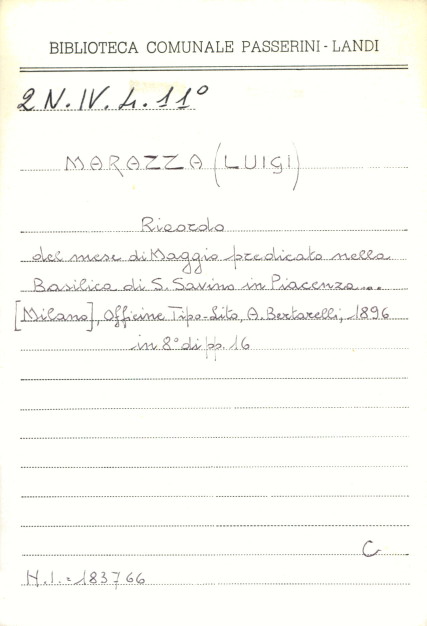 BIBLIOTECA COMUNALE PASSERINI - LANDI
2 N. IV. 4. 11º
MARAZZA (LUIGI)
Ricordo
del mese di Maggio predicato nella
Basilica di S. Savino in Piacenza...
[Milano], Officine Tipo-Lito, A. Bertarelli, 1896
in 8º di pp. 16
C
N.I. = 183766